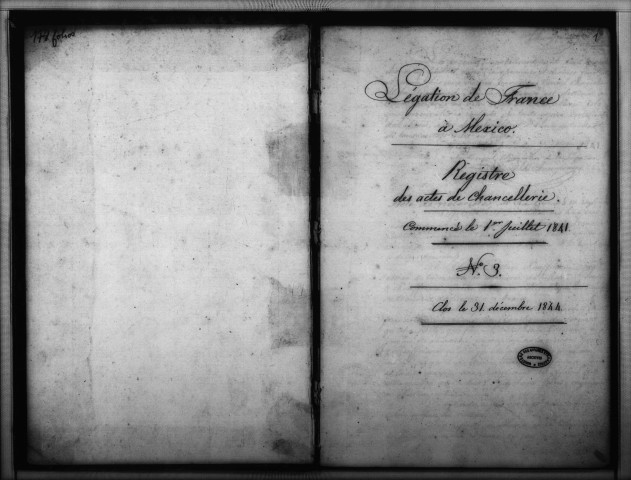 folios
1
Légation de France
à Mexico.
Registre
des actes de Chancellerie.
Commencé le 1er Juillet 1841.
N° 3.
Clos le 31. décembre 1844